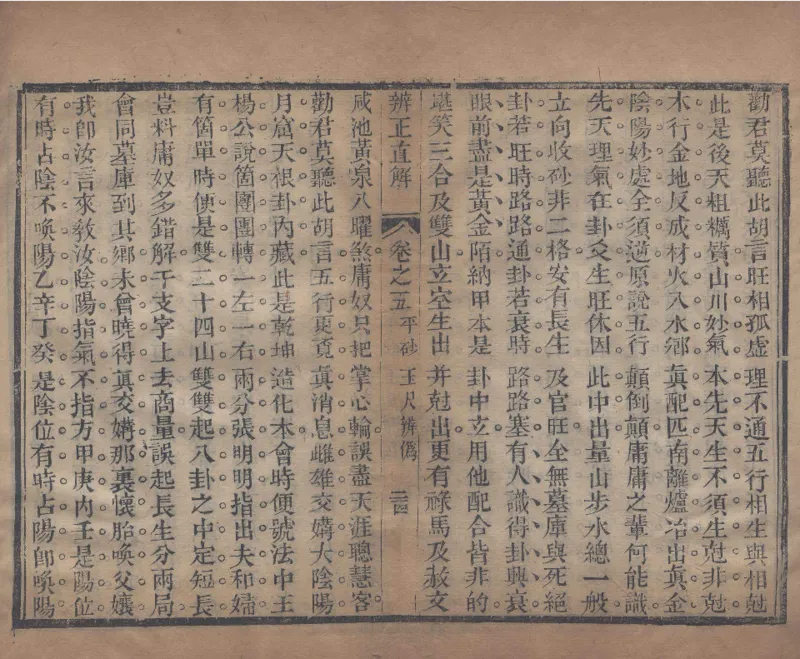 勸君莫聽此胡言旺相孤虛理不通五行相生與相尅
此是後天粗糲質山川妙氣本先天生不須生尅非尅
木行金地反成材火入水鄉眞配匹南離爐冶出眞金
陰陽妙處全須逆原說五行顛倒顛庸庸之輩何能識
先天理氣在卦爻生旺休因此中出量山步水總一般
立向收砂非二格安有長生及官旺全無墓庫與死絕
卦若旺時路路通卦若衰時路路塞有人識得卦興衰
眼前盡是黃金陌納甲本是卦中玄用他配合皆非的
堪笑三合及雙山立空生出并尅出更有祿馬及赦文
辨正直解 卷之五 平砂玉尺辨僞 三四
咸池黃泉八曜煞庸奴只把掌心輪誤盡天涯聰慧客
勸君莫聽此胡言五行更覓眞消息雌雄交媾大陰陽
月窟天根卦內藏此是乾坤造化本會時便號法中王
楊公說箇團團轉一左一右兩分張明明指出夫和婦
有箇單時便是雙二十四山雙雙起八卦之中定短長
豈料庸奴多錯解干支字上去商量誤起長生分兩局
會同墓庫到其鄉未曾曉得眞交媾那裏懷胎喚父孃
我卽汝言來敎汝陰陽指氣不指方甲庚丙壬是陽位
有時占陰不喚陽乙辛丁癸是陰位有時占陽卽喚陽